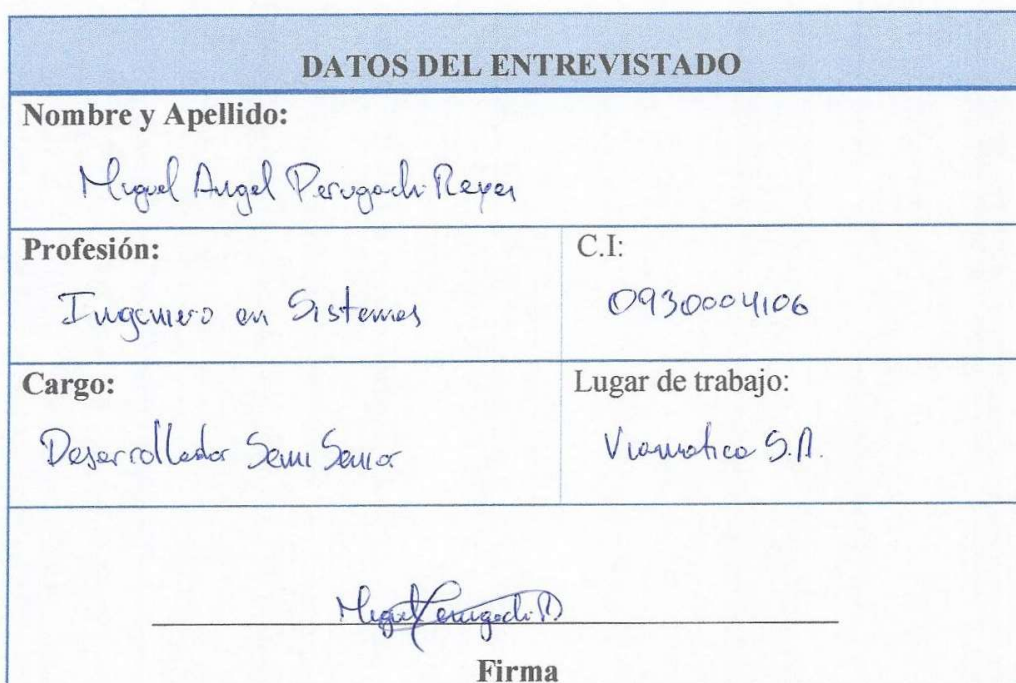 DATOS DEL ENTREVISTADO
Nombre y Apellido:
Miguel Angel Perugachi Reyes
Profesión:
Ingeniero en Sistemas
C.I:
0930004106
Cargo:
Desarrollador Semi Senior
Lugar de trabajo:
Viamatica S.A.
Miguel Perugachi R
Firma